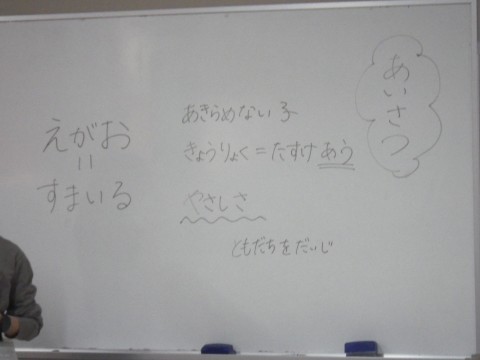 あいさつ
あきらめない子
きょうりょく=たすけあう
やさしさ
ともだちをだいじ
えがお
=
すまいる